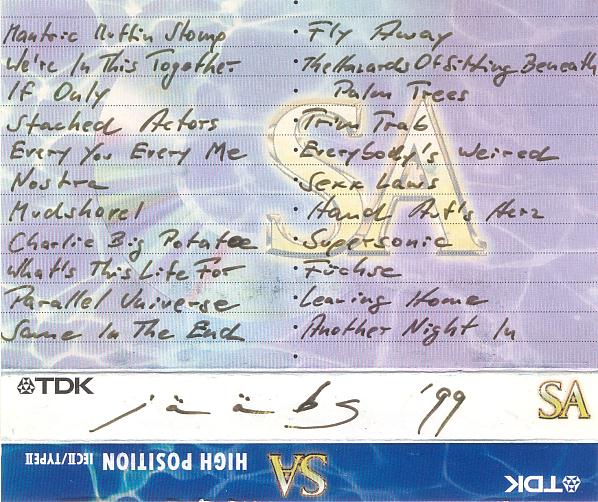 Mantric Muffin Stomp
We're In This Together
If Only
Stacked Actors
Every You Every Me
Nostra
Mudshovel
Charlie Big Potatoe
What's This Life For
Parallel Universe
Same In The End
· Fly Away
· The Hazards Of Sitting Beneath
Palm Trees
· Trim Trab
· Everybody's Weired
· Sexx Laws
· Hand Auf's Herz
· Supersonic
· Füchse
· Leaving Home
· Another Night In
SA
TDK
jääbs '99
SA
HIGH POSITION IECII/TYPEII
SA
TDK